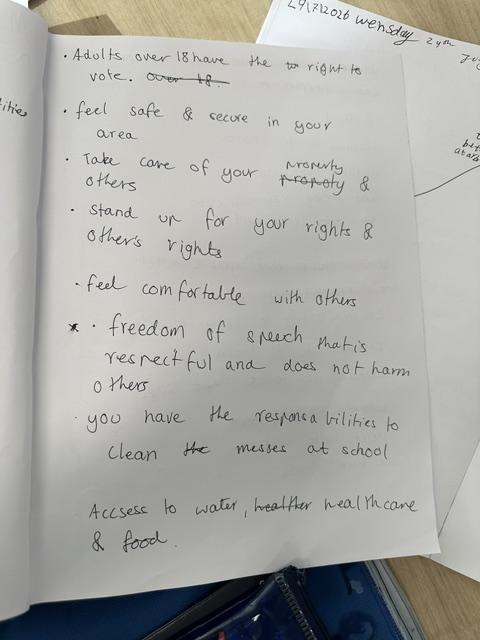 29/7/2026 wensday 29th
tities
• Adults over 18 have the right to
vote. over 18.
• feel safe & secure in your
area
• Take care of your property
propoty &
others
• stand up for your rights &
other's rights
• feel comfortable with others
• freedom of speech that is
respectful and does not harm
others
• you have the responsabilities to
clean the messes at school
Accsess to water, healther healthcare
& food.